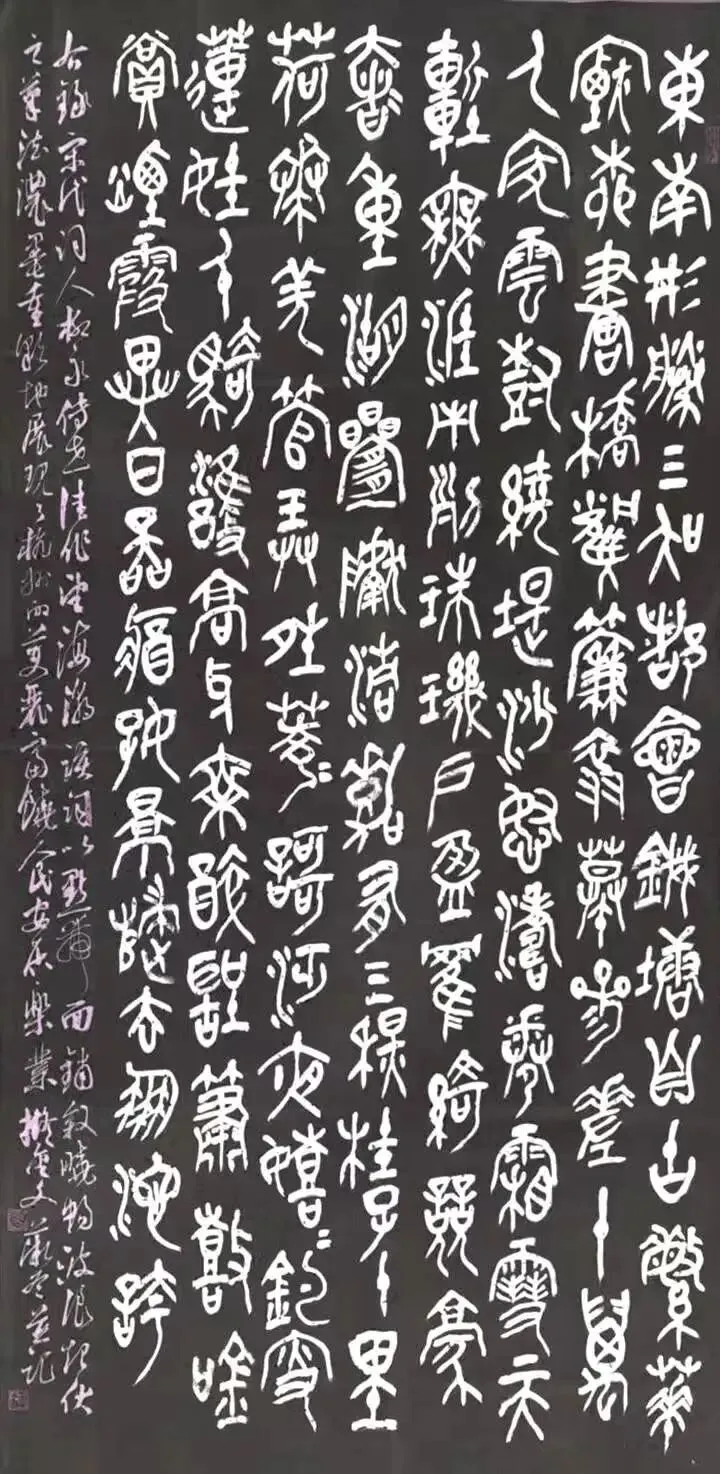 東南形勝三吳都會錢塘自古繁華
煙柳畫橋風簾翠幕參差十萬
人家雲樹繞堤沙怒濤卷霜雪天
塹無涯市列珠璣戶盈羅綺競豪
奢重湖疊巘清嘉有三秋桂子十里
荷花羌管弄晴菱歌泛夜嬉嬉釣叟
蓮娃千騎擁高牙乘醉聽簫鼓吟
賞煙霞異日圖將好景歸去鳳池誇
右錄宋代詞人柳永傳世佳作望海潮該詞以點帶面鋪敘曉暢波浪起伏
之筆法濃墨重彩地展現了杭州的美麗富饒人民安居樂業擬金文並記